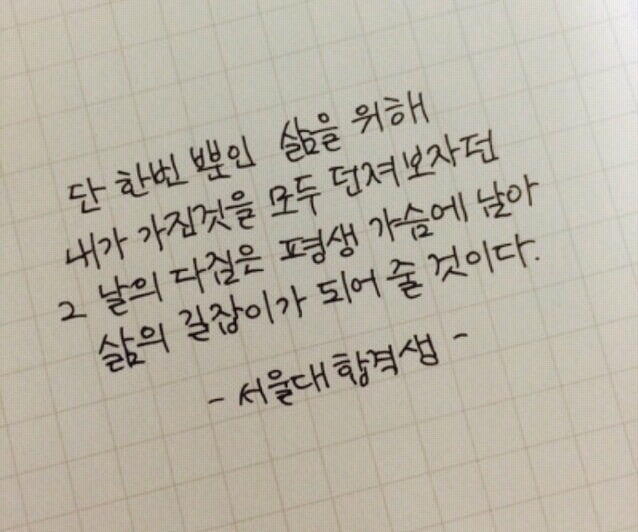 단 한번 뿐인 삶을 위해
내가 가진것을 모두 던져보자던
그 날의 다짐은 평생 가슴에 남아
삶의 길잡이가 되어 줄 것이다.
- 서울대 합격생 -